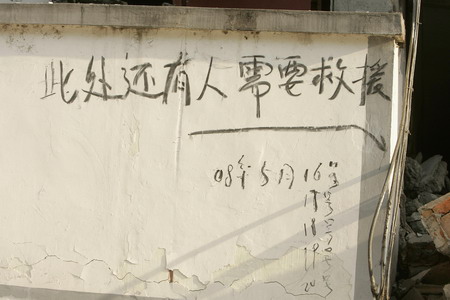 此处还有人需要救援
08年5月16号
17号
18号
19号
20